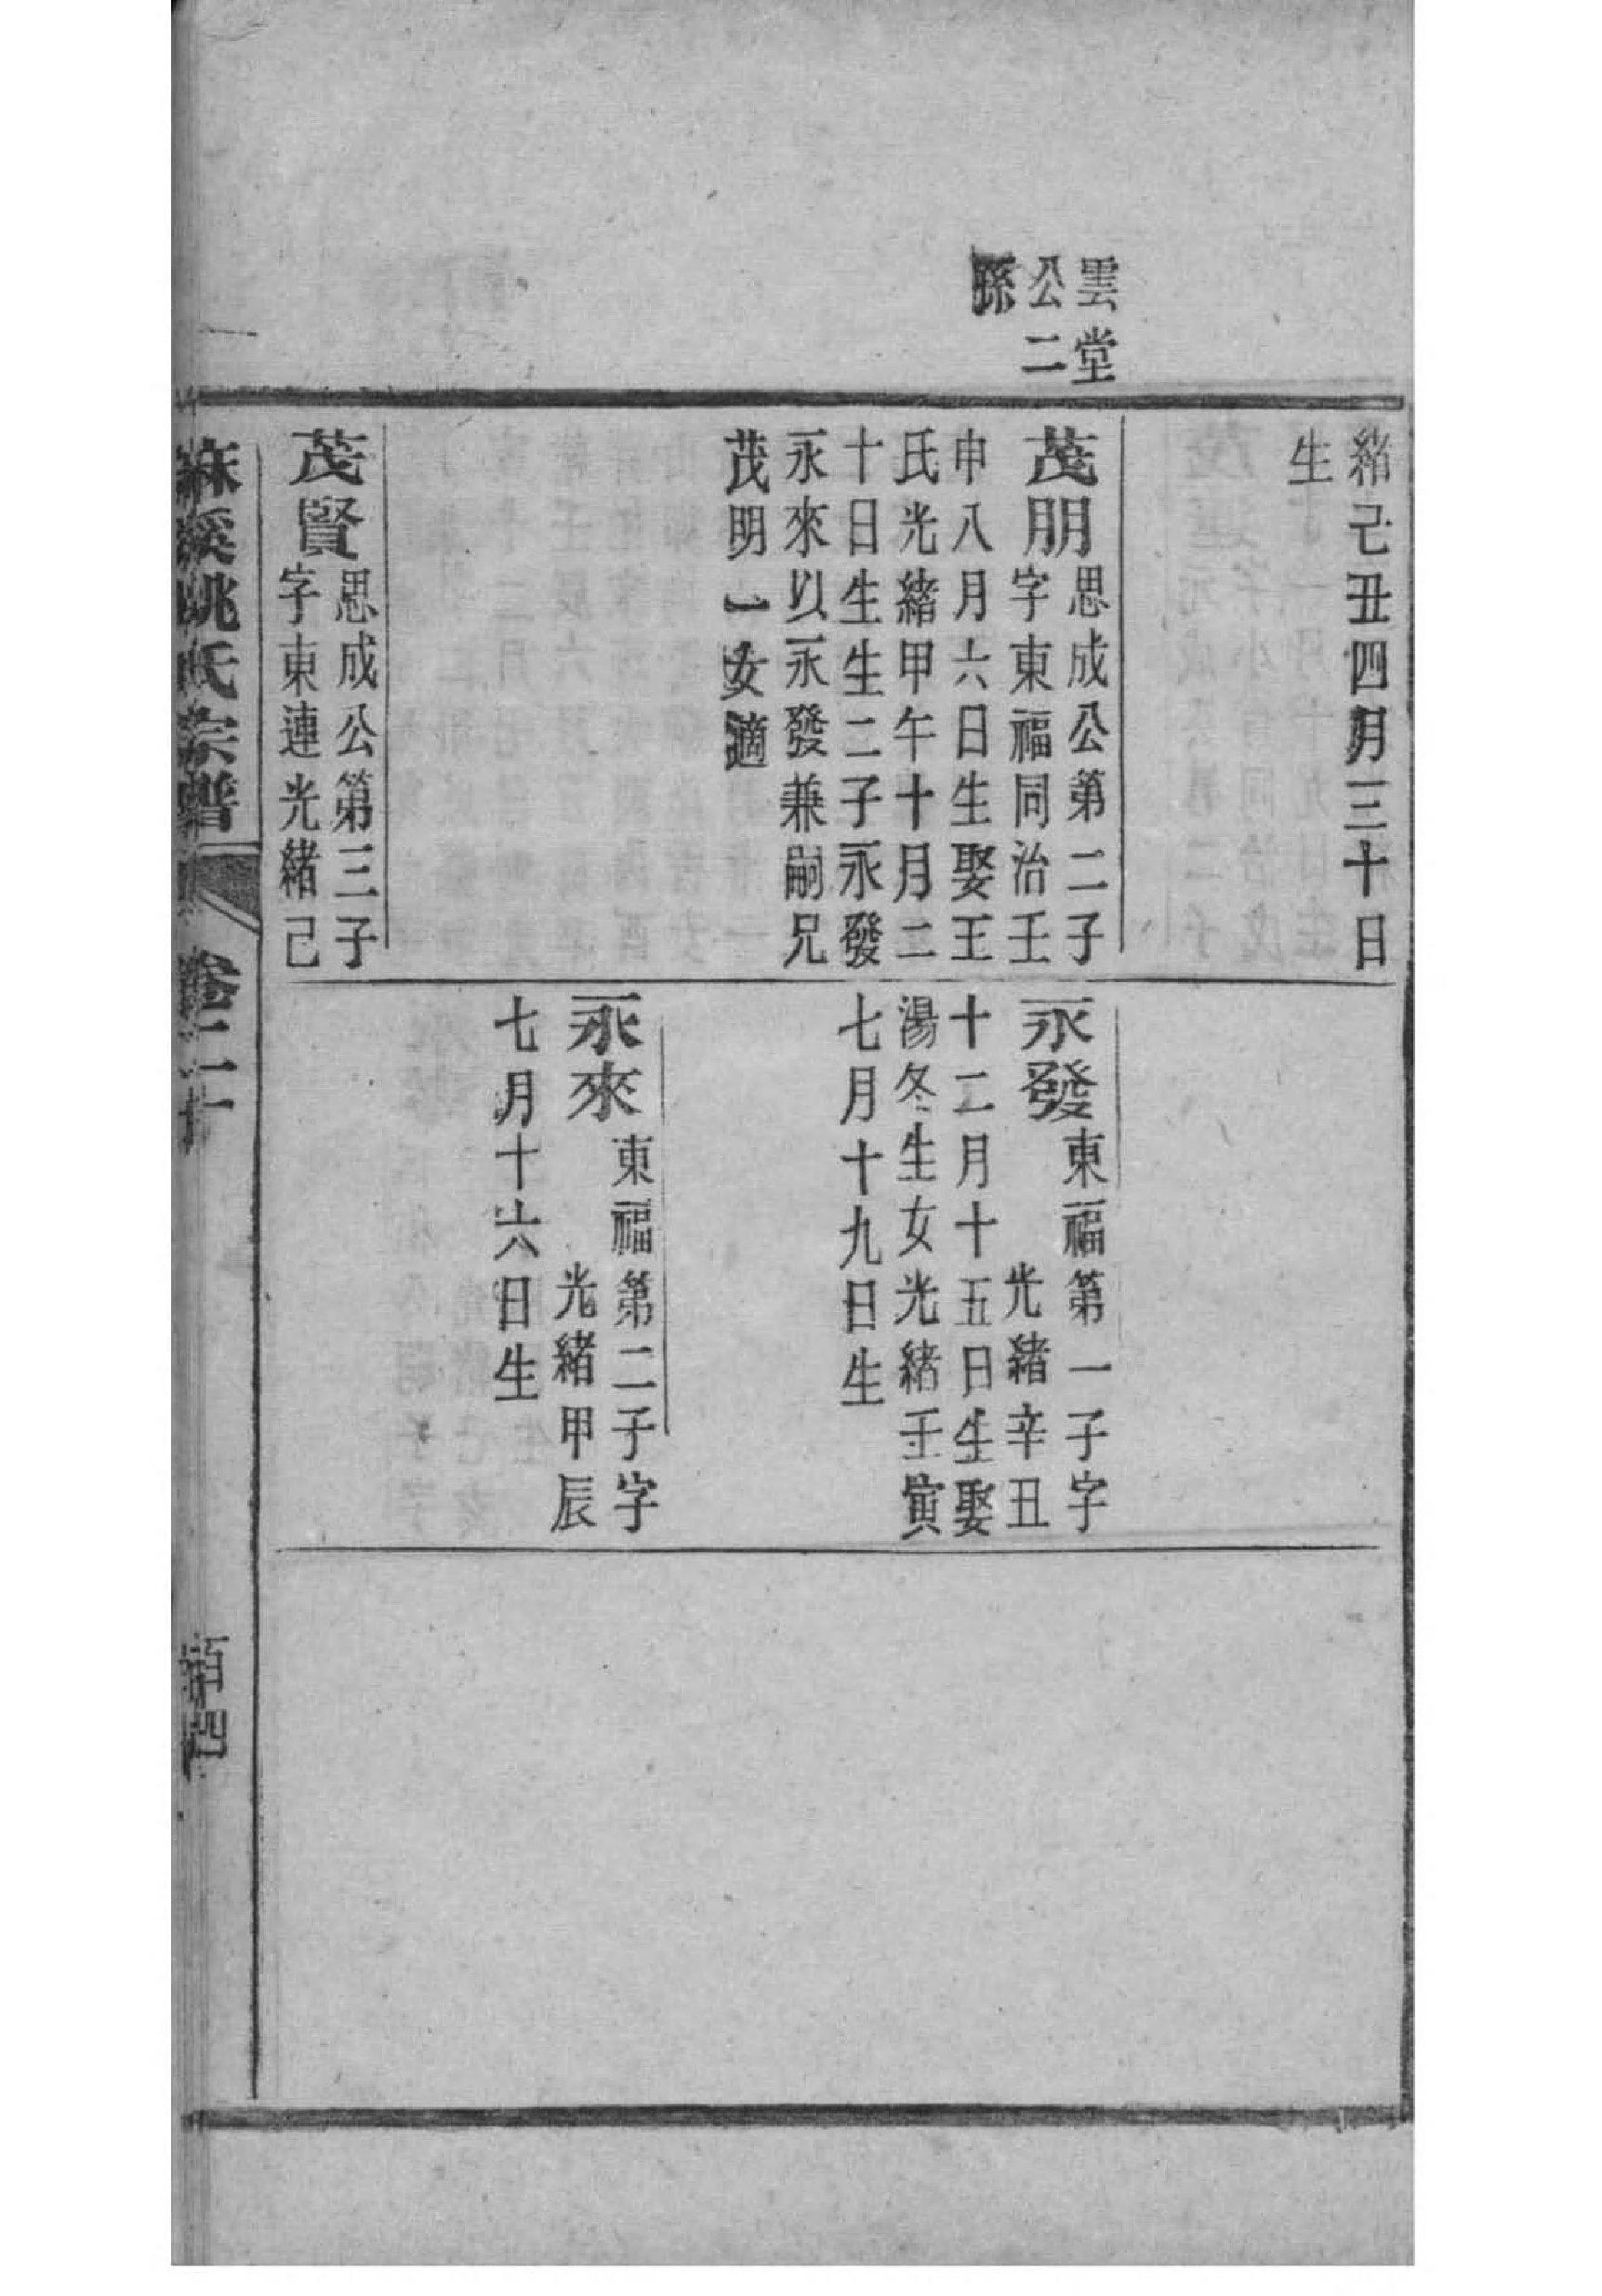 雲堂
公二
孫
緒己丑四月三十日
生
茂朋
思成公第二子
字東福同治壬
申八月六日生娶王
氏光緒甲午十月二
十日生生二子永發
永來以永發兼嗣兄
茂明一女適
茂賢
思成公第三子
字東連光緒己
永發
東福第一子字
光緒辛丑
十二月十五日生娶
湯冬生女光緒壬寅
七月十九日生
永來
東福第二子字
光緒甲辰
七月十六日生
麻溪姚氏宗譜
卷二十
百四